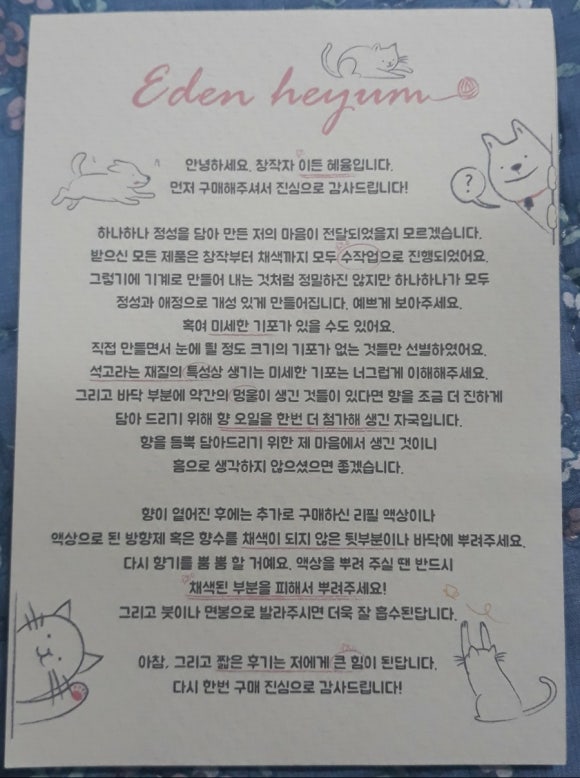 Eden heyum
안녕하세요. 창작자 이든 혜윰입니다.
먼저 구매해주셔서 진심으로 감사드립니다!
?
하나하나 정성을 담아 만든 저의 마음이 전달되었을지 모르겠습니다.
받으신 모든 제품은 창작부터 채색까지 모두 수작업으로 진행되었어요.
그렇기에 기계로 만들어 내는 것처럼 정밀하진 않지만 하나하나가 모두
정성과 애정으로 개성 있게 만들어집니다. 예쁘게 보아주세요.
혹여 미세한 기포가 있을 수도 있어요.
직접 만들면서 눈에 띌 정도 크기의 기포가 없는 것들만 선별하였어요.
석고라는 재질의 특성상 생기는 미세한 기포는 너그럽게 이해해주세요.
그리고 바닥 부분에 약간의 멍울이 생긴 것들이 있다면 향을 조금 더 진하게
담아 드리기 위해 향 오일을 한번 더 첨가해 생긴 자국입니다.
향을 듬뿍 담아드리기 위한 제 마음에서 생긴 것이니
흠으로 생각하지 않으셨으면 좋겠습니다.
향이 옅어진 후에는 추가로 구매하신 리필 액상이나
액상으로 된 방향제 혹은 향수를 채색이 되지 않은 뒷부분이나 바닥에 뿌려주세요.
다시 향기를 뿜 뿜 할 거예요. 액상을 뿌려 주실 땐 반드시
채색된 부분을 피해서 뿌려주세요!
그리고 붓이나 면봉으로 발라주시면 더욱 잘 흡수된답니다.
아참, 그리고 짧은 후기는 저에게 큰 힘이 된답니다.
다시 한번 구매 진심으로 감사드립니다!